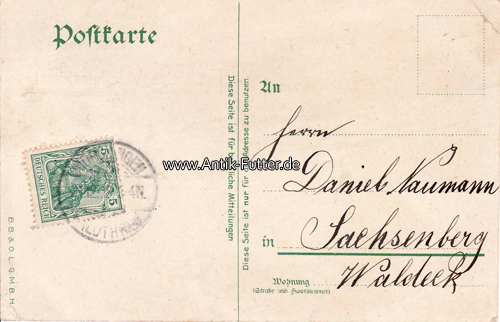 Postkarte
DEUTSCHES REICH
5
5
(LOTHR.)
BB & O.L.G.M.B.H.
Diese Seite ist für schriftliche Mitteilungen
Diese Seite ist nur für die Adresse zu benutzen
www.Antik-Futter.de
An
Herrn
Daniel Naumann
in Sachsenberg
Waldeck
Wohnung
(Straße und Hausnummer)